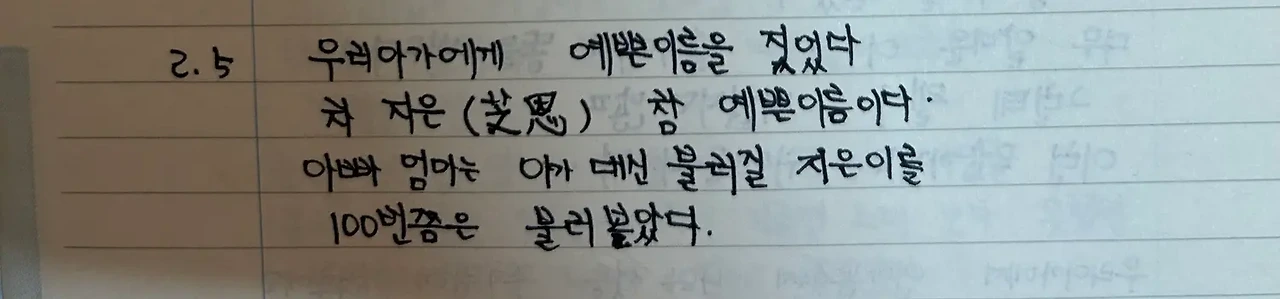 2.5 우리아가에게 예쁜이름을 짖었다
차 지은 (芝恩) 참 예쁜이름이다.
아빠 엄마는 아가 대신 불러질 지은이를
100번쯤은 불러볼았다.